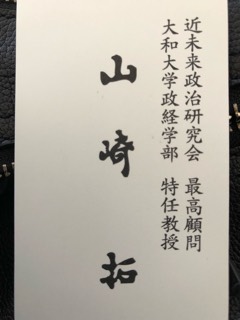 近未来政治研究会 最高顧問
大和大学政経学部 特任教授
山崎拓